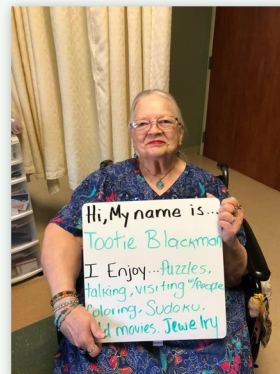 Hi, My name is...
Tootie Blackman
I Enjoy... Puzzles,
talking, visiting w/People
Coloring, Sudoku.
Old movies. Jewelry